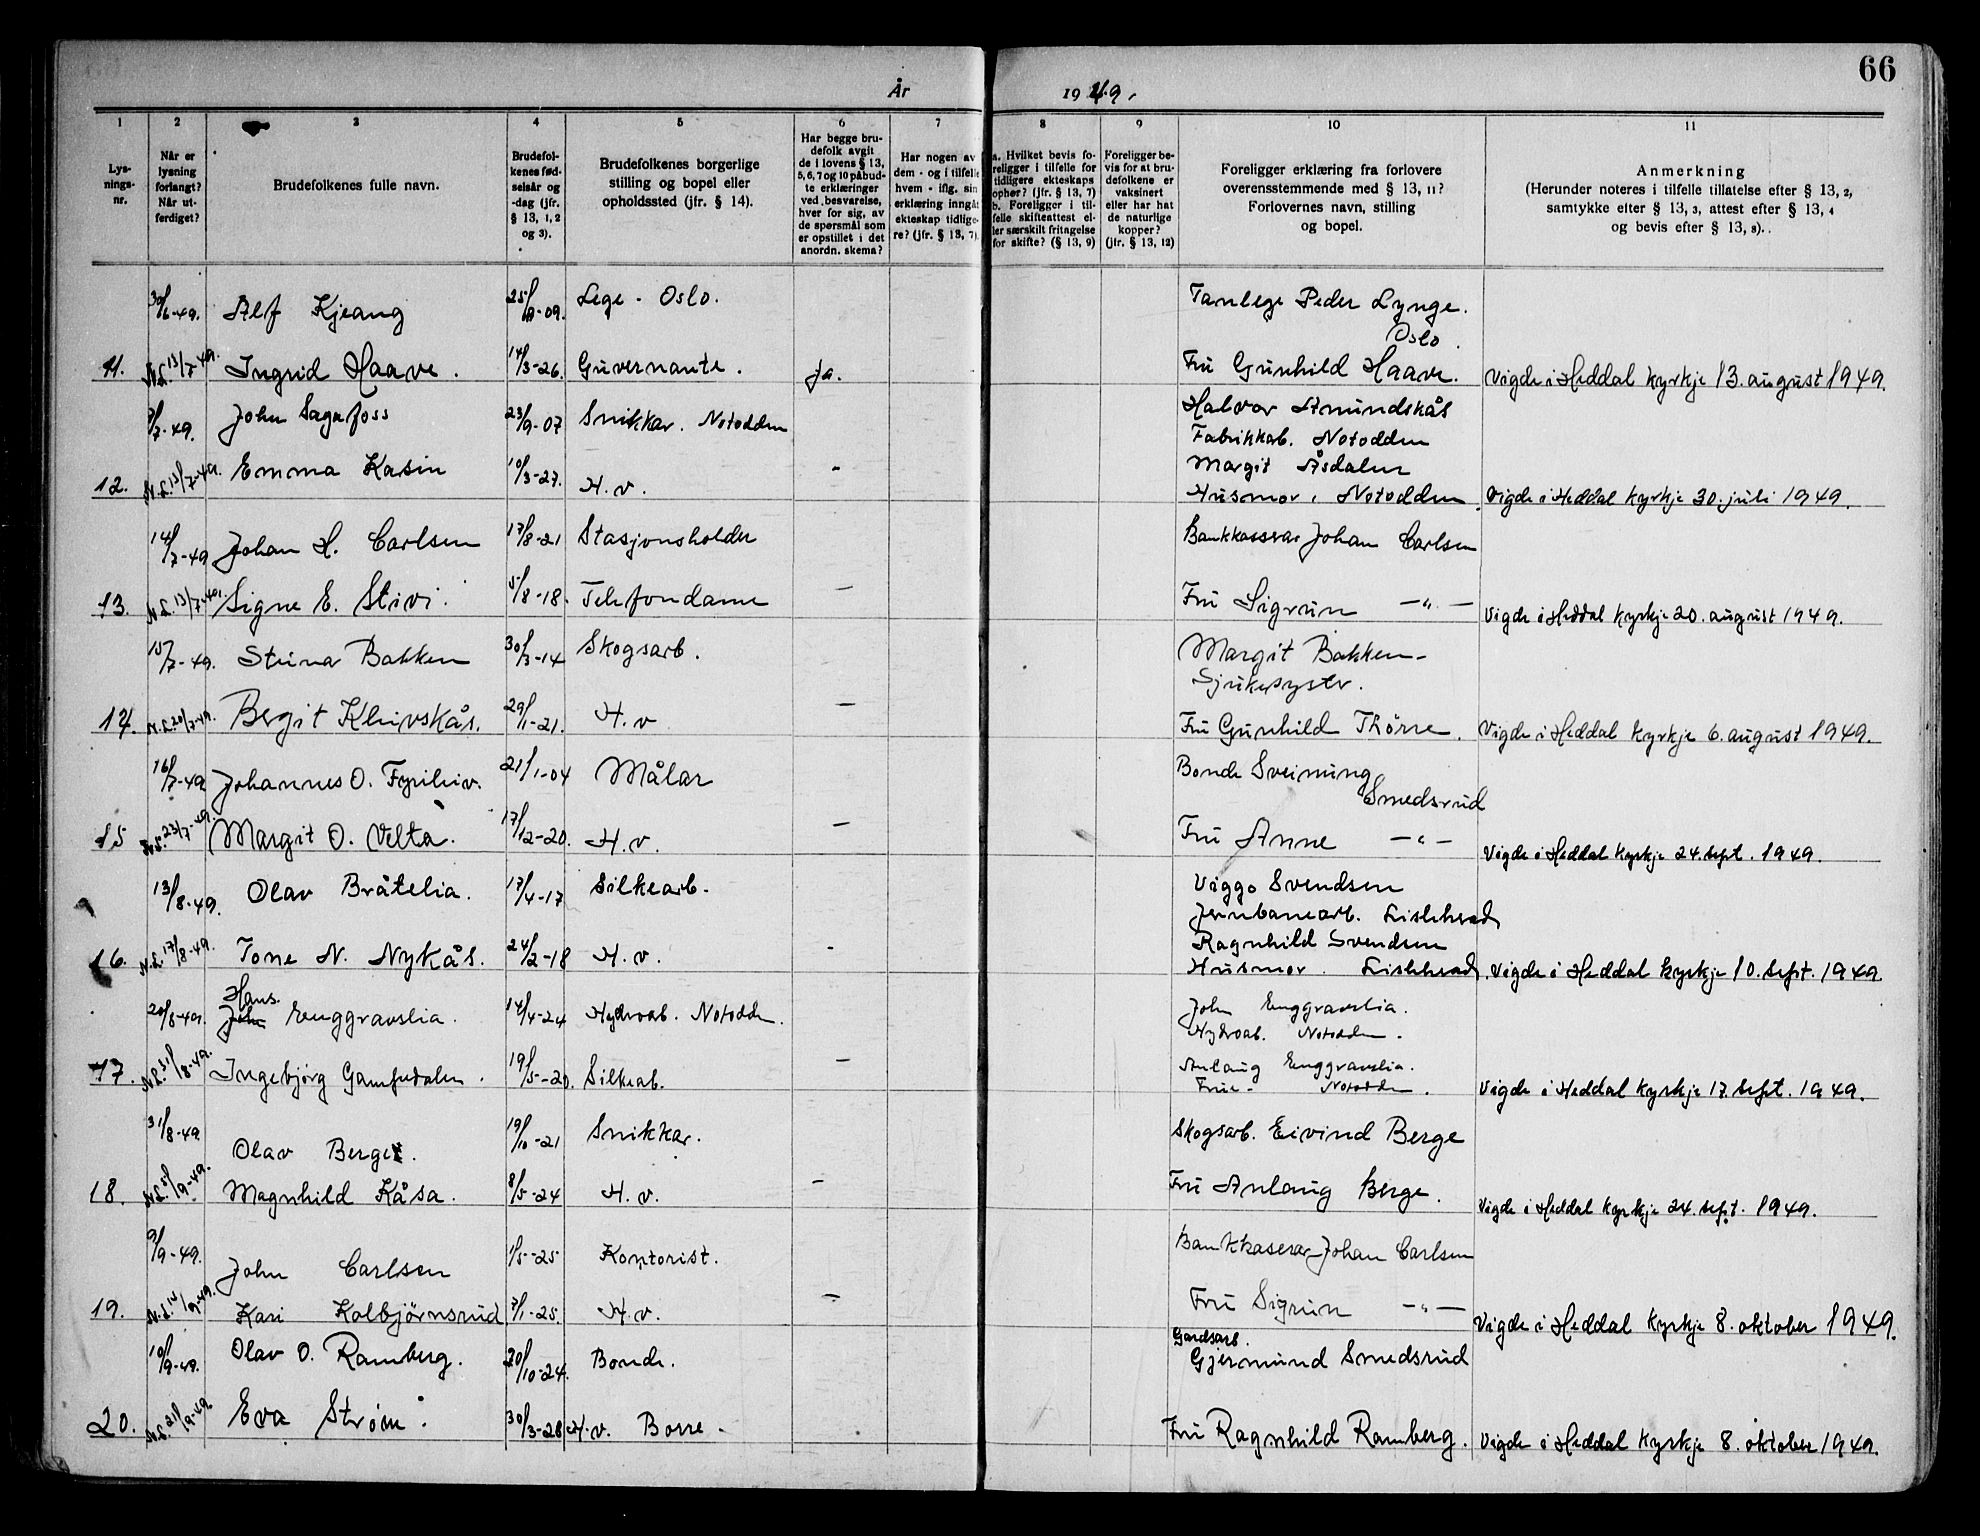 66
År 1949.
1 2 3 4 5 6 7 8 9 10 11
Lys-
nings-
nr.
Når er
lysning
forlangt?
Når ut-
ferdiget?
Brudefolkenes fulle navn.
Brudefol-
kenes fød-
selsår og
-dag (jfr.
§ 13, 1, 2
og 3).
Brudefolkenes borgerlige
stilling og bopel eller
opholdssted (jfr. § 14).
Har begge bru-
defolk avgit
de i lovens § 13,
5, 6, 7 og 10 påbud-
te erklæringer
ved besvarelse,
hver for sig, av
de spørsmål som
er opstillet i det
anordn. skema?
Har nogen av
dem - og i tilfelle
hvem - iflg. sin
erklæring inngåt
ekteskap tidlige-
re? (jfr. § 13, 7)
a. Hvilket bevis fo-
religger i tilfelle for
tidligere ekteskaps
ophør? (jfr. § 13, 7)
b. Foreligger i til-
felle skifteattest el-
ler særskilt fritagelse
for skifte? (§ 13, 9)
Foreligger be-
vis for at bru-
defolkene er
vaksinert
eller har hat
de naturlige
kopper?
(jfr. § 13, 12)
Foreligger erklæring fra forlovere
overensstemmende med § 13, 11?
Forlovernes navn, stilling
og bopel.
Anmerkning
(Herunder noteres i tilfelle tillatelse efter § 13, 2,
samtykke efter § 13, 3, attest efter § 13, 4
og bevis efter § 13, 8).
30/6-49. Alf Kjeang 25/8-09. Lege - Oslo. Tanlege Peder Lynge.
Oslo.
11. N.L. 13/7-49. Ingrid Haave. 14/3-26. Guvernante. Ja. Fru Gunhild Haave. Vigde i Heddal kyrkje 13. august 1949.
7/7-49. John Sagafoss 23/9-07 Snikkar. Notodden Halvor Amundskås
Fabrikkab. Notodden
Emma Kasin 10/3-27. - Margit Åsdalen
12. N.L. 13/7-49. H.v. Husmor, Notodden. Vigde i Heddal kyrkje 30. juli 1949.
14/7-49 Johan H. Carlsen 17/8-21 Stasjonsholder Bankkasserar Johan Carlsen
13. N.L. 13/7-49. Signe E. Stivi. 5/8-18. Telefondame — Fru Sigrun —"— Vigde i Heddal kyrkje 20. august 1949.
15/7-49. Steinar Bakken 30/3-14 Skogsarb. Margit Bakken-
Sjukesyster.
14. N.L. 20/7-49. Bergit Kleivskås. 29/1-21. H.v — Fru Gunhild Thorse. Vigde i Heddal kyrkje 6. august 1949.
16/7-49 Johannes O. Fyrileiv. 21/1-04 Målar Bonde Sveinung
Smedsrud
15 N.L. 23/7-49. Margit O. Velta. 17/12-20. H.v. — Fru Anne —"— Vigde i Heddal kyrkje 24. sept. 1949.
13/8-49. Olav Bråtelia. 17/4-17 Silkearb. Viggo Svendsen
Jernbanearb. Lisleherad
16. N.L. 17/8-49. Tone N. Nykås. 24/2-18 H.v. - Ragnhild Svendsen
Husmor. Lisleherad. Vigde i Heddal kyrkje 10. sept. 1949.
Hans.
20/8-49. John Enggravslia. 14/4-24 Hydroab. Notodden. John Enggravslia.
Hydroab. Notodden.
17. N.L. 31/8-49. Ingebjørg Gamfudalen. 19/5-20. Silkeab. — Anlaug Enggravslia.
Frue- Notodden. Vigde i Heddal kyrkje 17. sept. 1949.
31/8-49 Olav Berge. 19/10-21 Snikkar. Skogsarb. Eivind Berge
18. N.L. 5/9-49. Magnhild Kåsa. 8/5-24 H.v. — Fru Anlaug Berge. Vigde i Heddal kyrkje 24. sept. 1949.
9/9-49. John Carlsen 1/5-25 Kontorist. Bankkaserar Johan Carlsen
19. N.L. 14/9-49. Kari Kolbjørnsrud 7/1-25. H.v. — Fru Sigrun —"— Vigde i Heddal kyrkje 8. oktober 1949.
Gardsarb.
10/9-49. Olav O. Ramberg. 20/10-24. Bonde. Gjermund Smedsrud
20. N.L. 21/9-49 Eva Strøm. 30/3-28 H.v. Borre. Fru Ragnhild Ramberg. Vigde i Heddal kyrkje 8. oktober 1949.